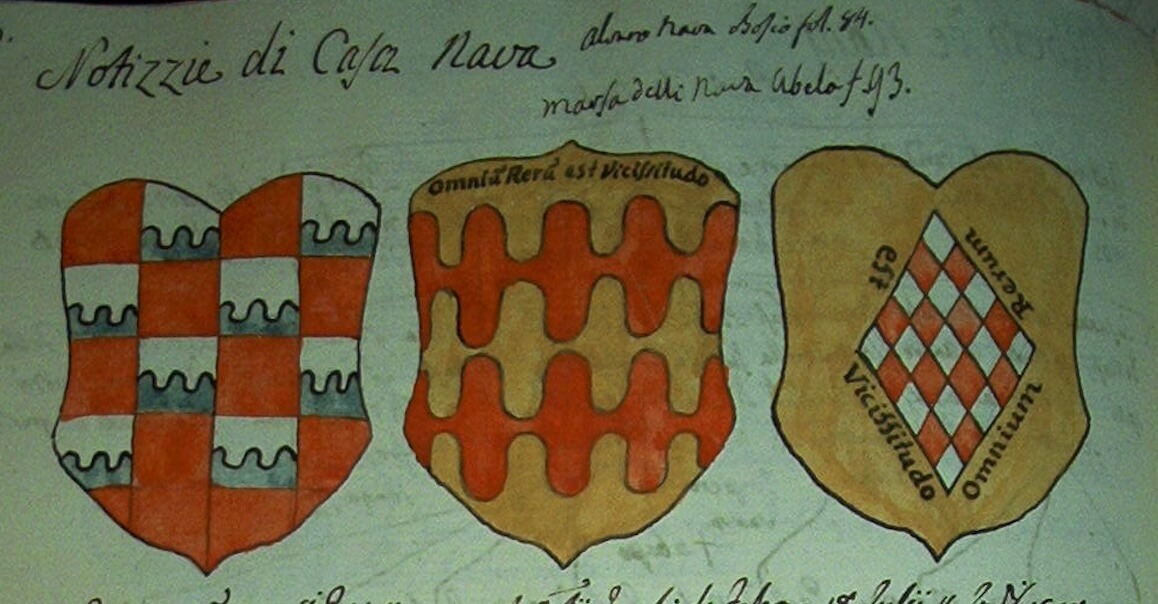 Notizzie di Casa Nava
Alvaro Nava Bosio fol. 84.
Marsa delli Nava Abela f. 93.
Omniũ Rerũ est Vicissitudo
est
Rerum
Vicissitudo
Omnium